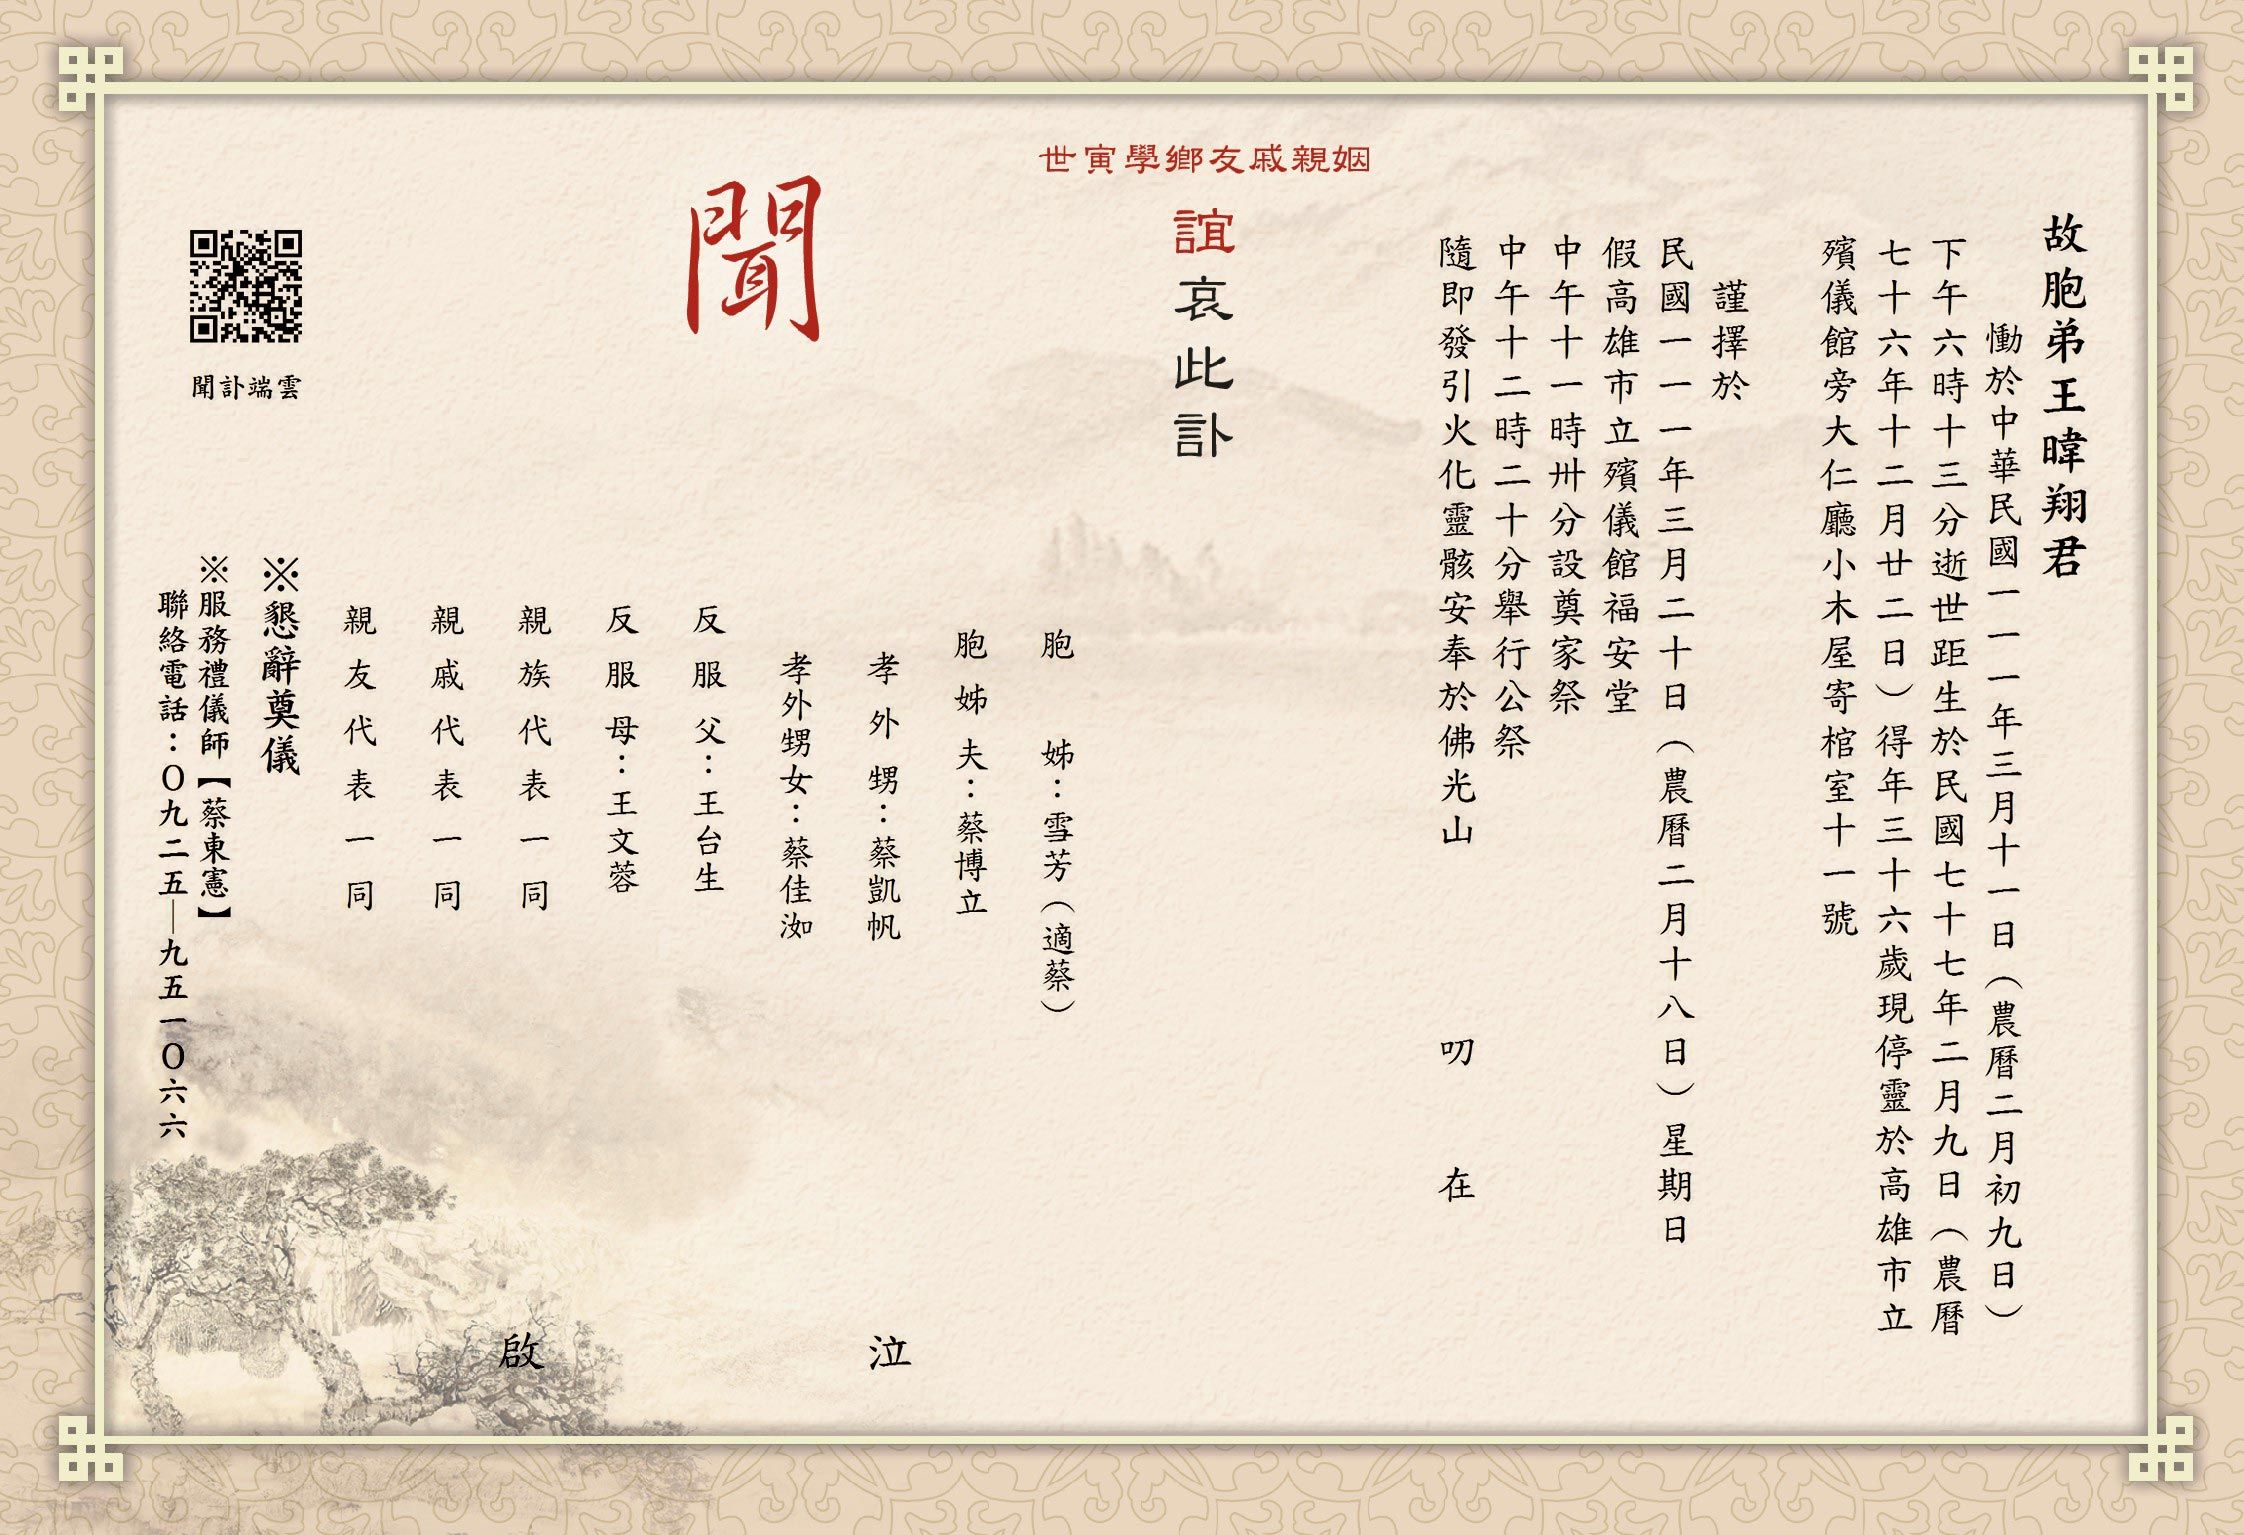 故胞弟王暐翔君
慟於中華民國一一一年三月十一日（農曆二月初九日）
下午六時十三分逝世距生於民國七十七年二月九日（農曆
七十六年十二月廿二日）得年三十六歲現停靈於高雄市立
殯儀館旁大仁廳小木屋寄棺室十一號
謹擇於
民國一一一年三月二十日（農曆二月十八日）星期日
假高雄市立殯儀館福安堂
中午十一時卅分設奠家祭
中午十二時二十分舉行公祭
隨即發引火化靈骸安奉於佛光山 叨 在
姻親戚友鄉學寅世
誼哀此訃
聞
胞 姊：雪芳（適蔡）
胞姊夫：蔡博立
孝外甥：蔡凱帆
孝外甥女：蔡佳洳
反服父：王台生
反服母：王文蓉
親族代表一同
親戚代表一同
親友代表一同
泣
啟
※懇辭奠儀
※服務禮儀師【蔡東憲】
聯絡電話：０九二五—九五一０六六
雲端訃聞